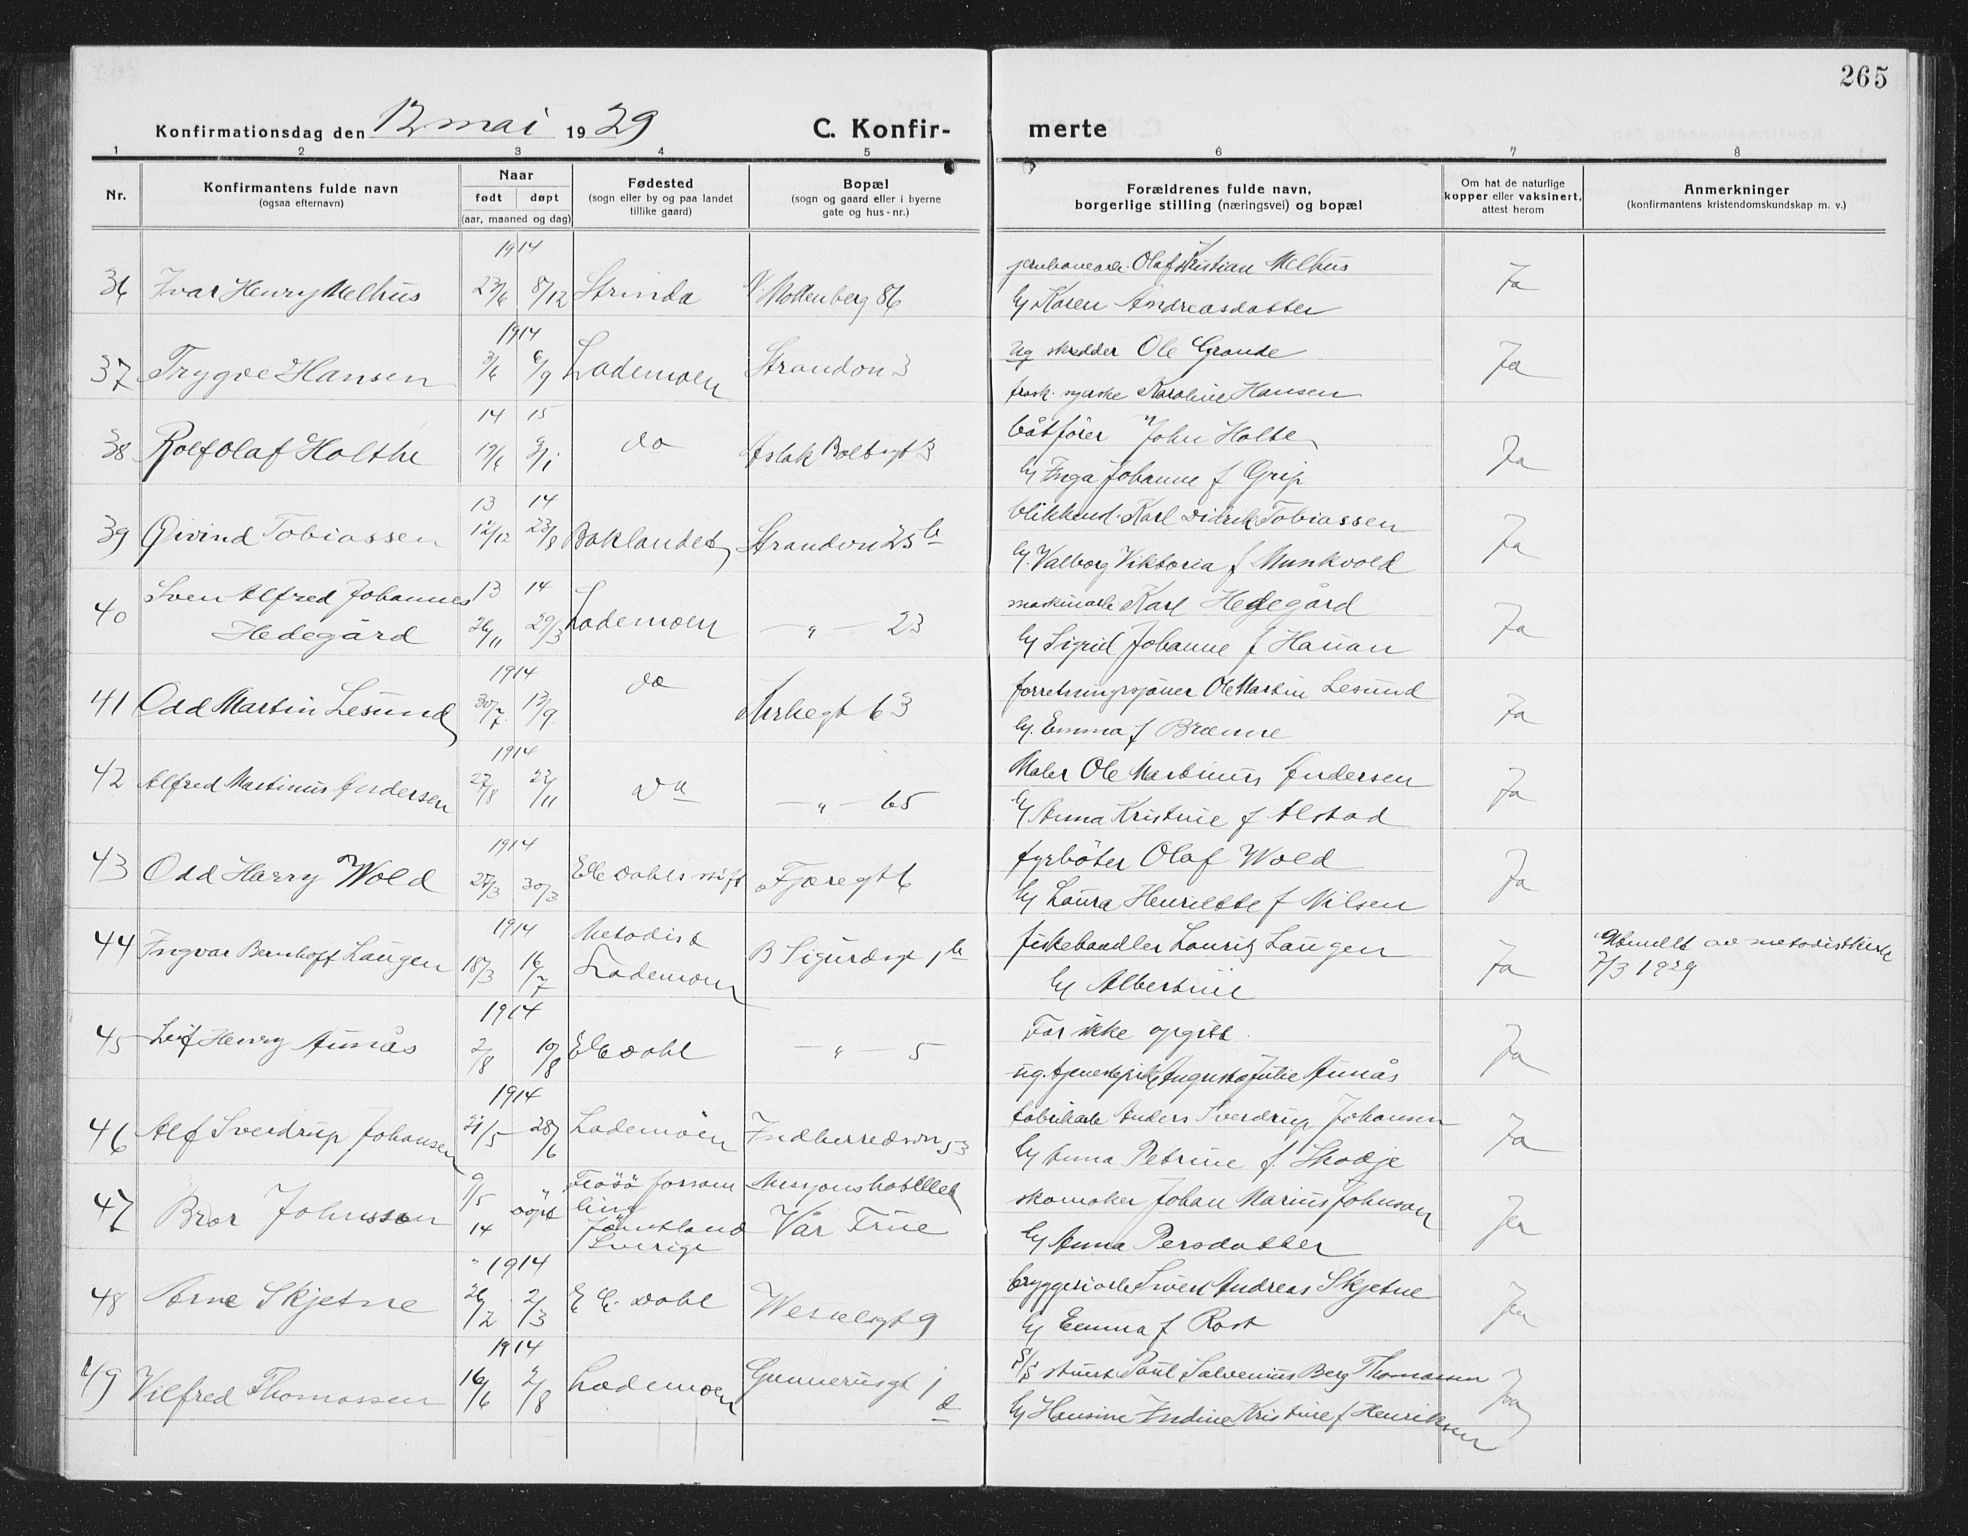 265
Konfirmationsdag den 12 mai 1929
C. Konfir- merte
1 2 3 4 5 6 7 8
Nr.
Konfirmantens fulde navn
(ogsaa efternavn)
Naar
født døpt
(aar, maaned og dag)
Fødested
(sogn eller by og paa landet
tillike gaard)
Bopæl
(sogn og gaard eller i byerne
gate og hus-nr.)
Forældrenes fulde navn,
borgerlige stilling (næringsvei) og bopæl
Om hat de naturlige
kopper eller vaksinert,
attest herom
Anmerkninger
(konfirmantens kristendomskundskap m. v.)
1914
36 Ivar Henry Melhus 23/6 8/12 Strinda N. Møllenberg 86
jernbanearb. Olaf Kristian Melhus
Hu Karen Andreasdatter
Ja
1914
37 Trygve Hansen 3/6 6/9 Lademoen Strandvn 3
ug skrædder Ole Grande
frask. syerske Karoline Hansen
Ja
14 15
38 Rolf Olaf Holthe 19/6 3/1 do Aslak Boltsgt 3
båtfører John Holte
Hu Inga Johanne f Grip
Ja
13 14
39 Øivind Tobiassen 12/12 23/3 Baklandet Strandvn 25 b
blikkensl. Karl Didrik Tobiassen
Hu. Valborg Viktoria f Munkvold
Ja
40 Sven Alfred Johannes 13 14
Hedegård 26/11 29/3 Lademoen — " — 23
maskinarb Karl Hedegård
Hu Sigrid Johanne f Hauan
Ja
1914
41 Odd Martin Lesund 30/7 13/9 do Kirkegt 63
forretningsfører Ole Martin Lesund
Hu. Emma f Brænne
Ja
1914
42 Alfred Martinus Andersen 27/8 22/11 Do — " — 65
Maler Ole Martinus Andersen
Hu Anna Kristine f Alstad
Ja
1914
43 Odd Harry Wold 27/3 30/3 E C Dahls stift Fjæregt 6
fyrbøter Olaf Wold
Hu Laura Henriette f Nilsen
Ja
1914
44 Ingvar Bernhoft Laugen 18/3 16/7 Metodist
Lademoen B Sigurdsgt 1 b
fiskehandler Lauritz Laugen
Hu Albertine
Ja
utmeldt av metodistkirke
7/3 1929
1914
45 Leif Henry Aunås 2/8 10/8 E C Dahl — " — 5
Far ikke opgitt.
ug. tjenestepike Augusta Julie Aunås
Ja
1914
46 Alf Sverdrup Johansen 21/5 28/6 Lademoen Indherredsvn 53
fabrikarb Anders Sverdrup Johansen
Hu Anna Petrine f. Skodje
Ja
47 Bror Johnsson 9/5 14 døpt Frösö forsam
ling
Jämtland
Sverige
Misjonshotellet
Vår Frue
skomaker Johan Marius Johnson
Hu Anna Persdatter
Ja
1914
48 Arne Skjetne 26/2 2/3 E. C. Dahl Wesselsgt 9
bryggeriarb Sivert Andreas Skjetne
Hu Emma f Rost
Ja
1914
49 Vilfred Thomassen 16/6 2/8 Lademoen Gunnerusgt 1 a
S/S stuert Paul Salvenius Berg Thomassen
Hu Hansine Indine Kristine f Henriksen
Ja